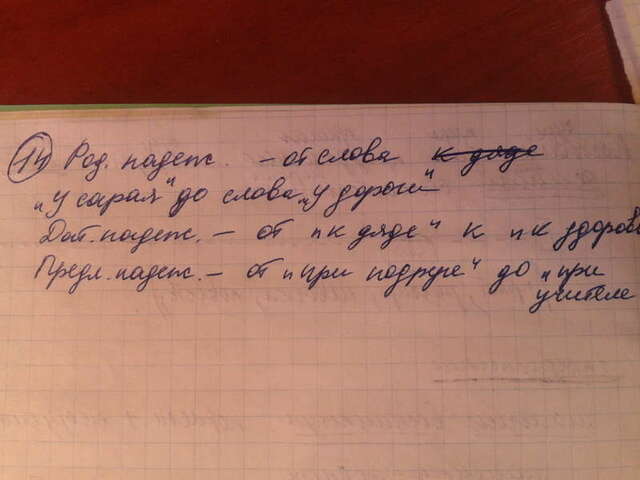 14 Род. падеж. – от слова к дяде
„У сарая" до слова „У дороги"
Дат. падеж. – от „к дяде" к „к здоров
Предл. падеж. – от „при подруге" до „при
учителе